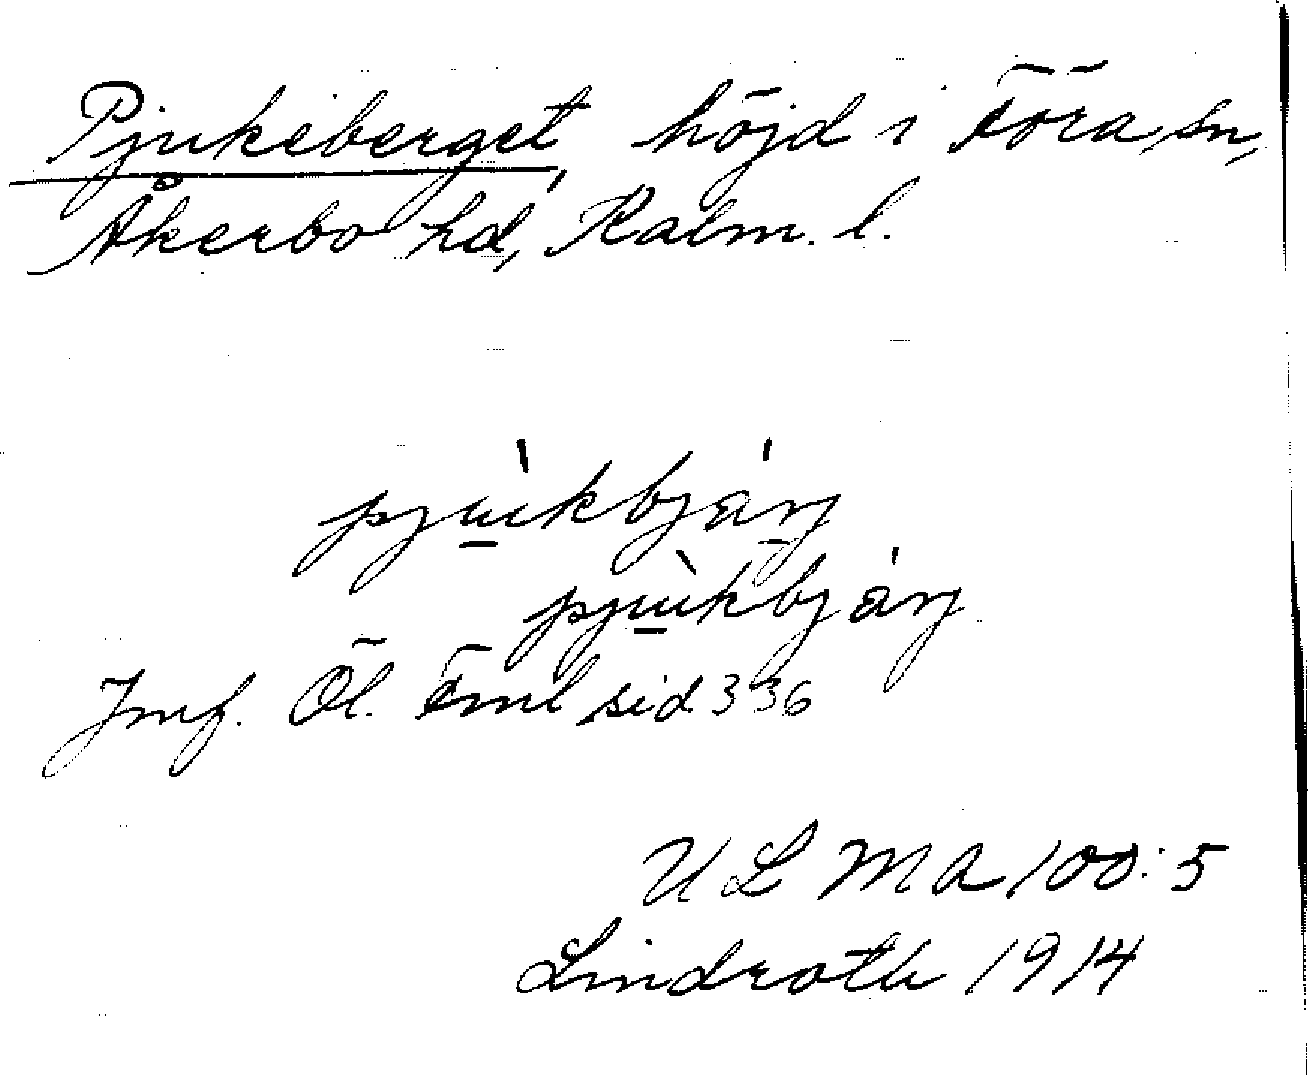 Pjukeberget, höjd i Föra sn,
Åkerbo hd, Kalm. l.
pjùkbjár̨j
pjùkbjárj
Jmf. Öl. Fml sid. 336
ULMA 100:5
Lindroth 1914